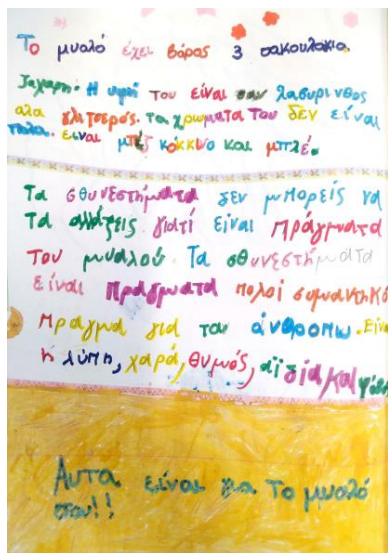 Το μυαλό έχει βάρος 3 σακουλακια
ζαχαρη. Η υφή του είναι σαν λαβυρινθος
αλα γλιτσερός. τα χρωματα του δεν είναι
πολα. ειναι μπεζ κόκκινο και μπλέ.
Τα σθυνεστήματα δεν μπορείς να
Τα αλλάζεις γιατί είναι πράγματα
του μυαλού. Τα σθυνεστήματα
είναι πραγματα πολοί συμαντηκό
πραγμα για τον άνθροπω. Είναι
η λύπη, χαρά, θυμός, αϊδία, και φόβος
Αυτα είναι για το μυαλό
σου!!